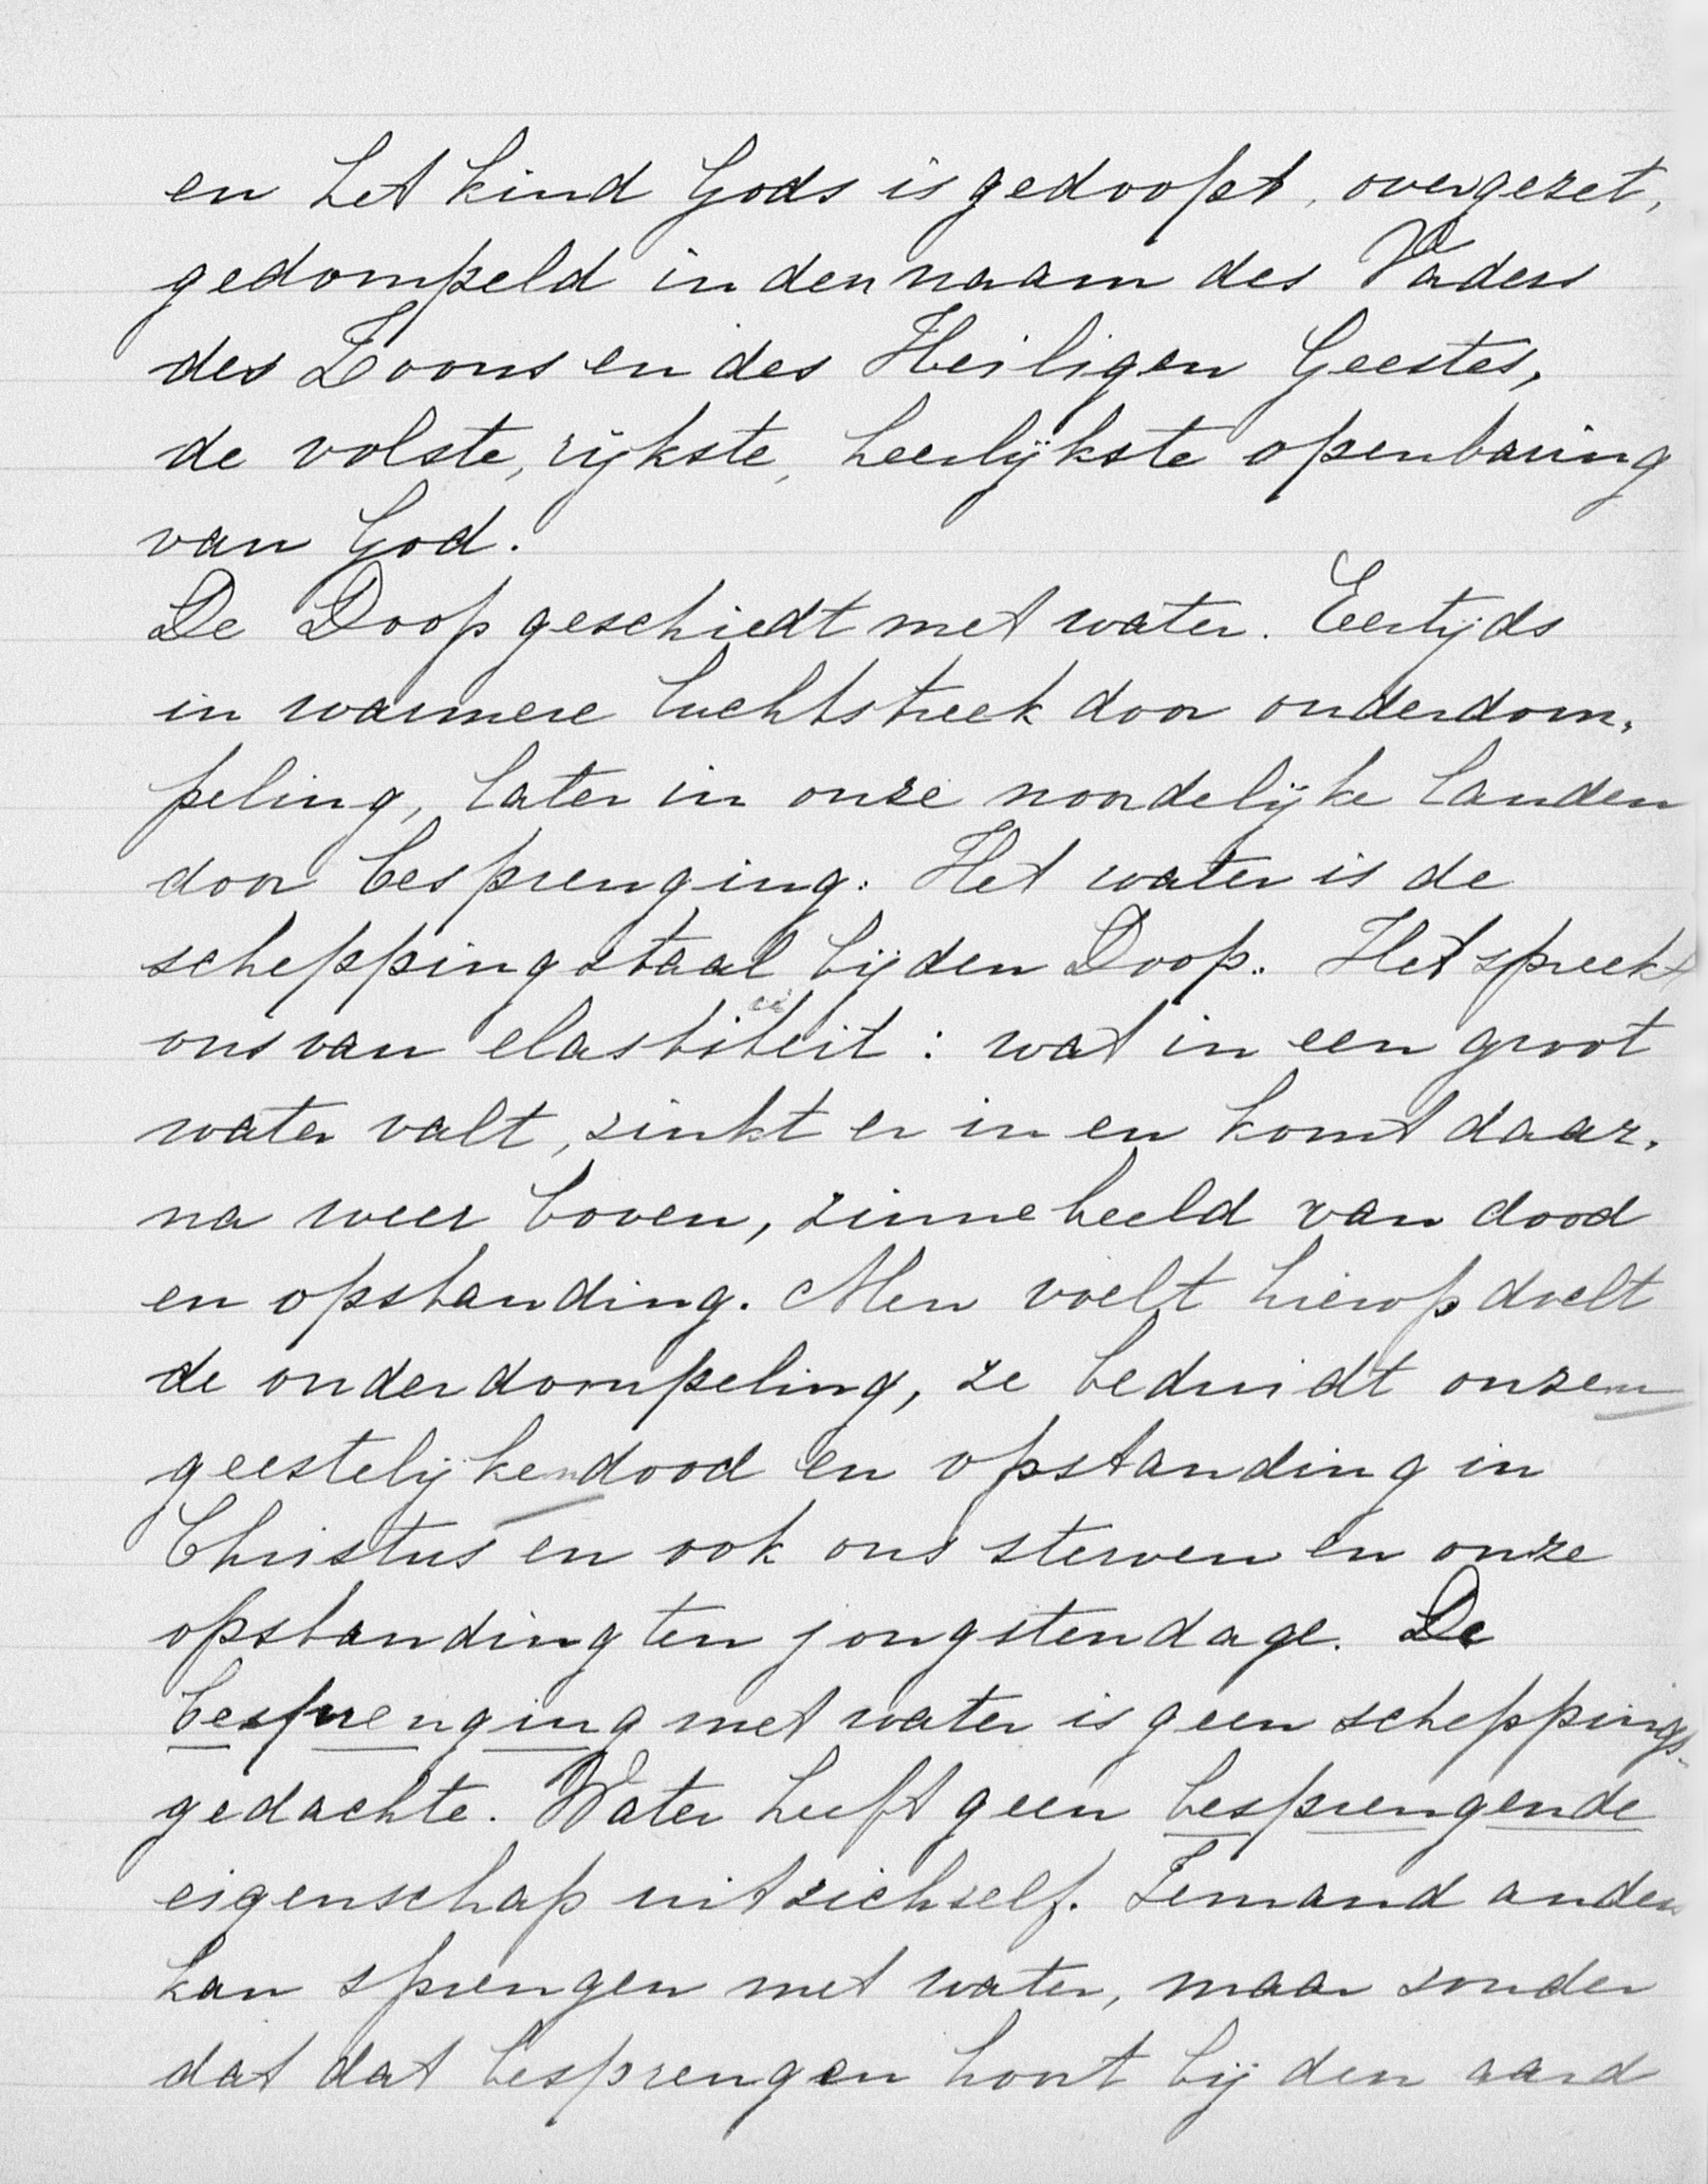 en het kind Gods is gedoopt, overgezet,
gedompeld in den naam des Vaders
des Zoons en des Heiligen Geestes,
de volste, rijkste, heerlijkste openbaring
van God.
De Doop geschiedt met water. Eertijds
in warmere luchtstreek door onderdom-
peling, later in onze noordelijke landen
door besprenging. Het water is de
scheppingstaal bij den Doop. Het spreekt
ons van elastiteit : wat in een groot
water valt, zinkt er in en komt daar-
na weer boven, zinnebeeld van dood
en opstanding. Men voelt hierop doelt
de onderdompeling, ze beduidt onzen
geestelijken dood en opstanding in
Christus en ook ons sterven en onze
opstanding ten jongsten dage. De
besprenging met water is geen scheppings-
gedachte. Water heeft geen besprengende
eigenschap uit zichzelf. Iemand anders
kan sprengen met water, maar zonder
dat dat besprengen hoort bij den aard